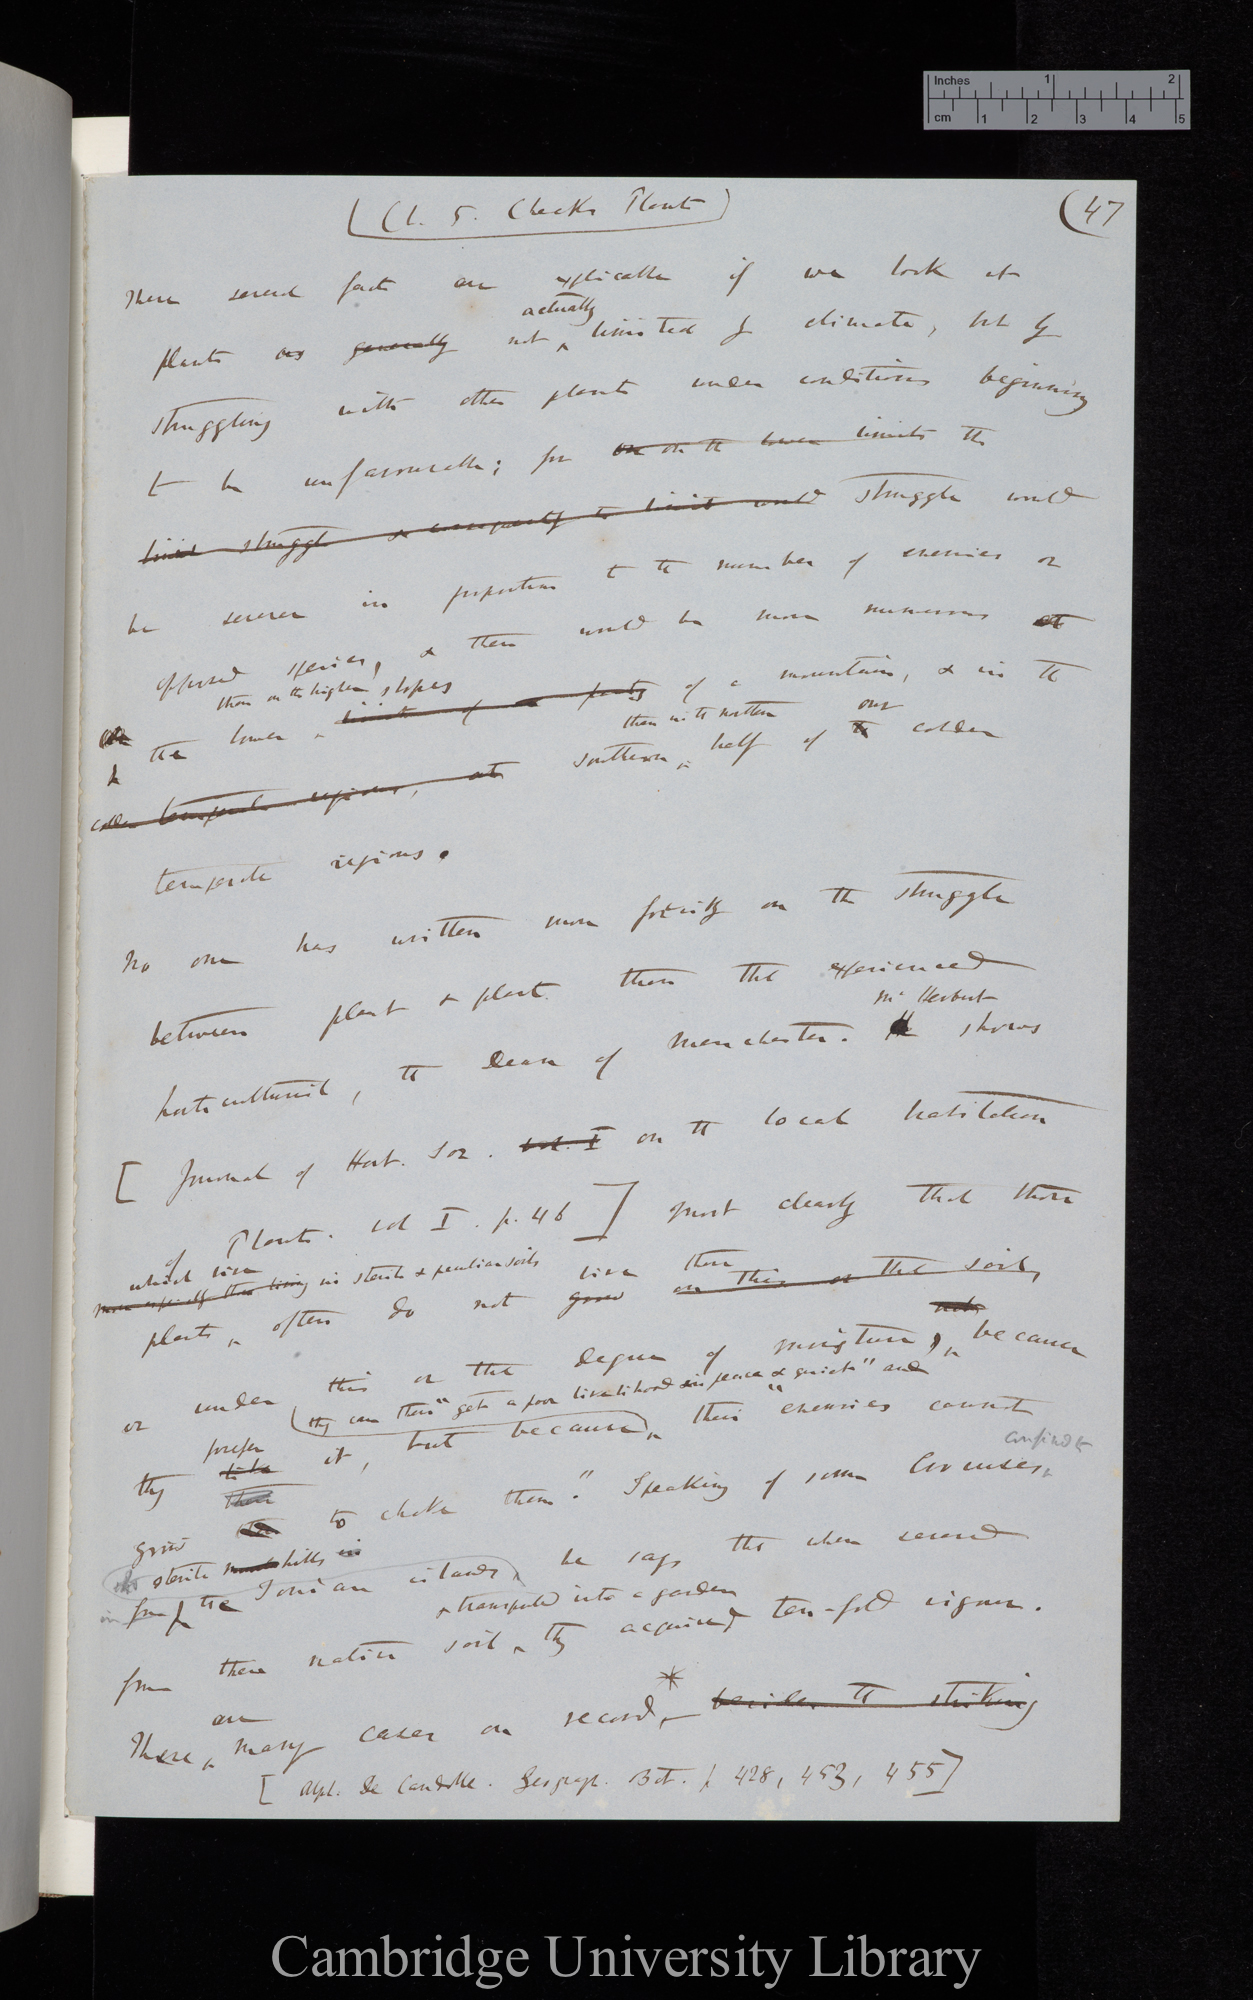 Inches 1 2
cm 1 2 3 4 5
(Ch. 5. Checks Plants)
(47
These several facts are explicable if we look at
actually
plants as generally not limited by climate, but by
struggling with other plants under conditions beginning
to be unfavourable; for on the lower limits the
limit struggle & consequently the limit would struggle would
be severer in proportion to the number of enemies or
opposed species, & these would be more numerous at
than on the higher slopes
on the lower limits of a party of a mountain, & in the
than in the northern our
colder temperate regions, at southern half of the colder
temperate regions.
No one has written more forcibly on the struggle
between plant & plant than the experienced
Mr Herbert
horticulturist, the Dean of Manchester. He shows
[Journal of Hort. Soc. vol. I on the local habitation
of Plants. vol I. p. 46] most clearly that those
which live
more especially those living in sterile & peculiar soils
plants, often do not grow live there on this or that soil,
or under this or that degree of moisture, because
they can there "get a poor livelihood in peace & quiet" and
prefer
they like it, but because their "enemies cannot
confined to
grow there to choke them". Speaking of some Crocuses,
sterile hills in
from the Ionian islands, he says that when removed
& transported into a garden
from there native soil, they acquired ten-fold vigour.
are
There, many cases on record,* besides the striking
[Alph. De Candolle. Geograp. Bot. p 428, 453, 455]
Cambridge University Library